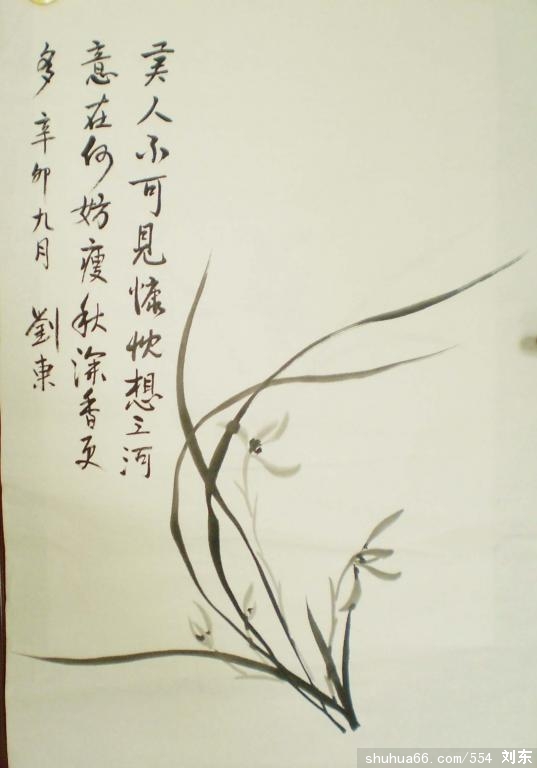 美人不可見慷忱想三河
意在何妨瘦秋深香更
多 辛卯九月 劉東
shuhua66.com/554 刘东